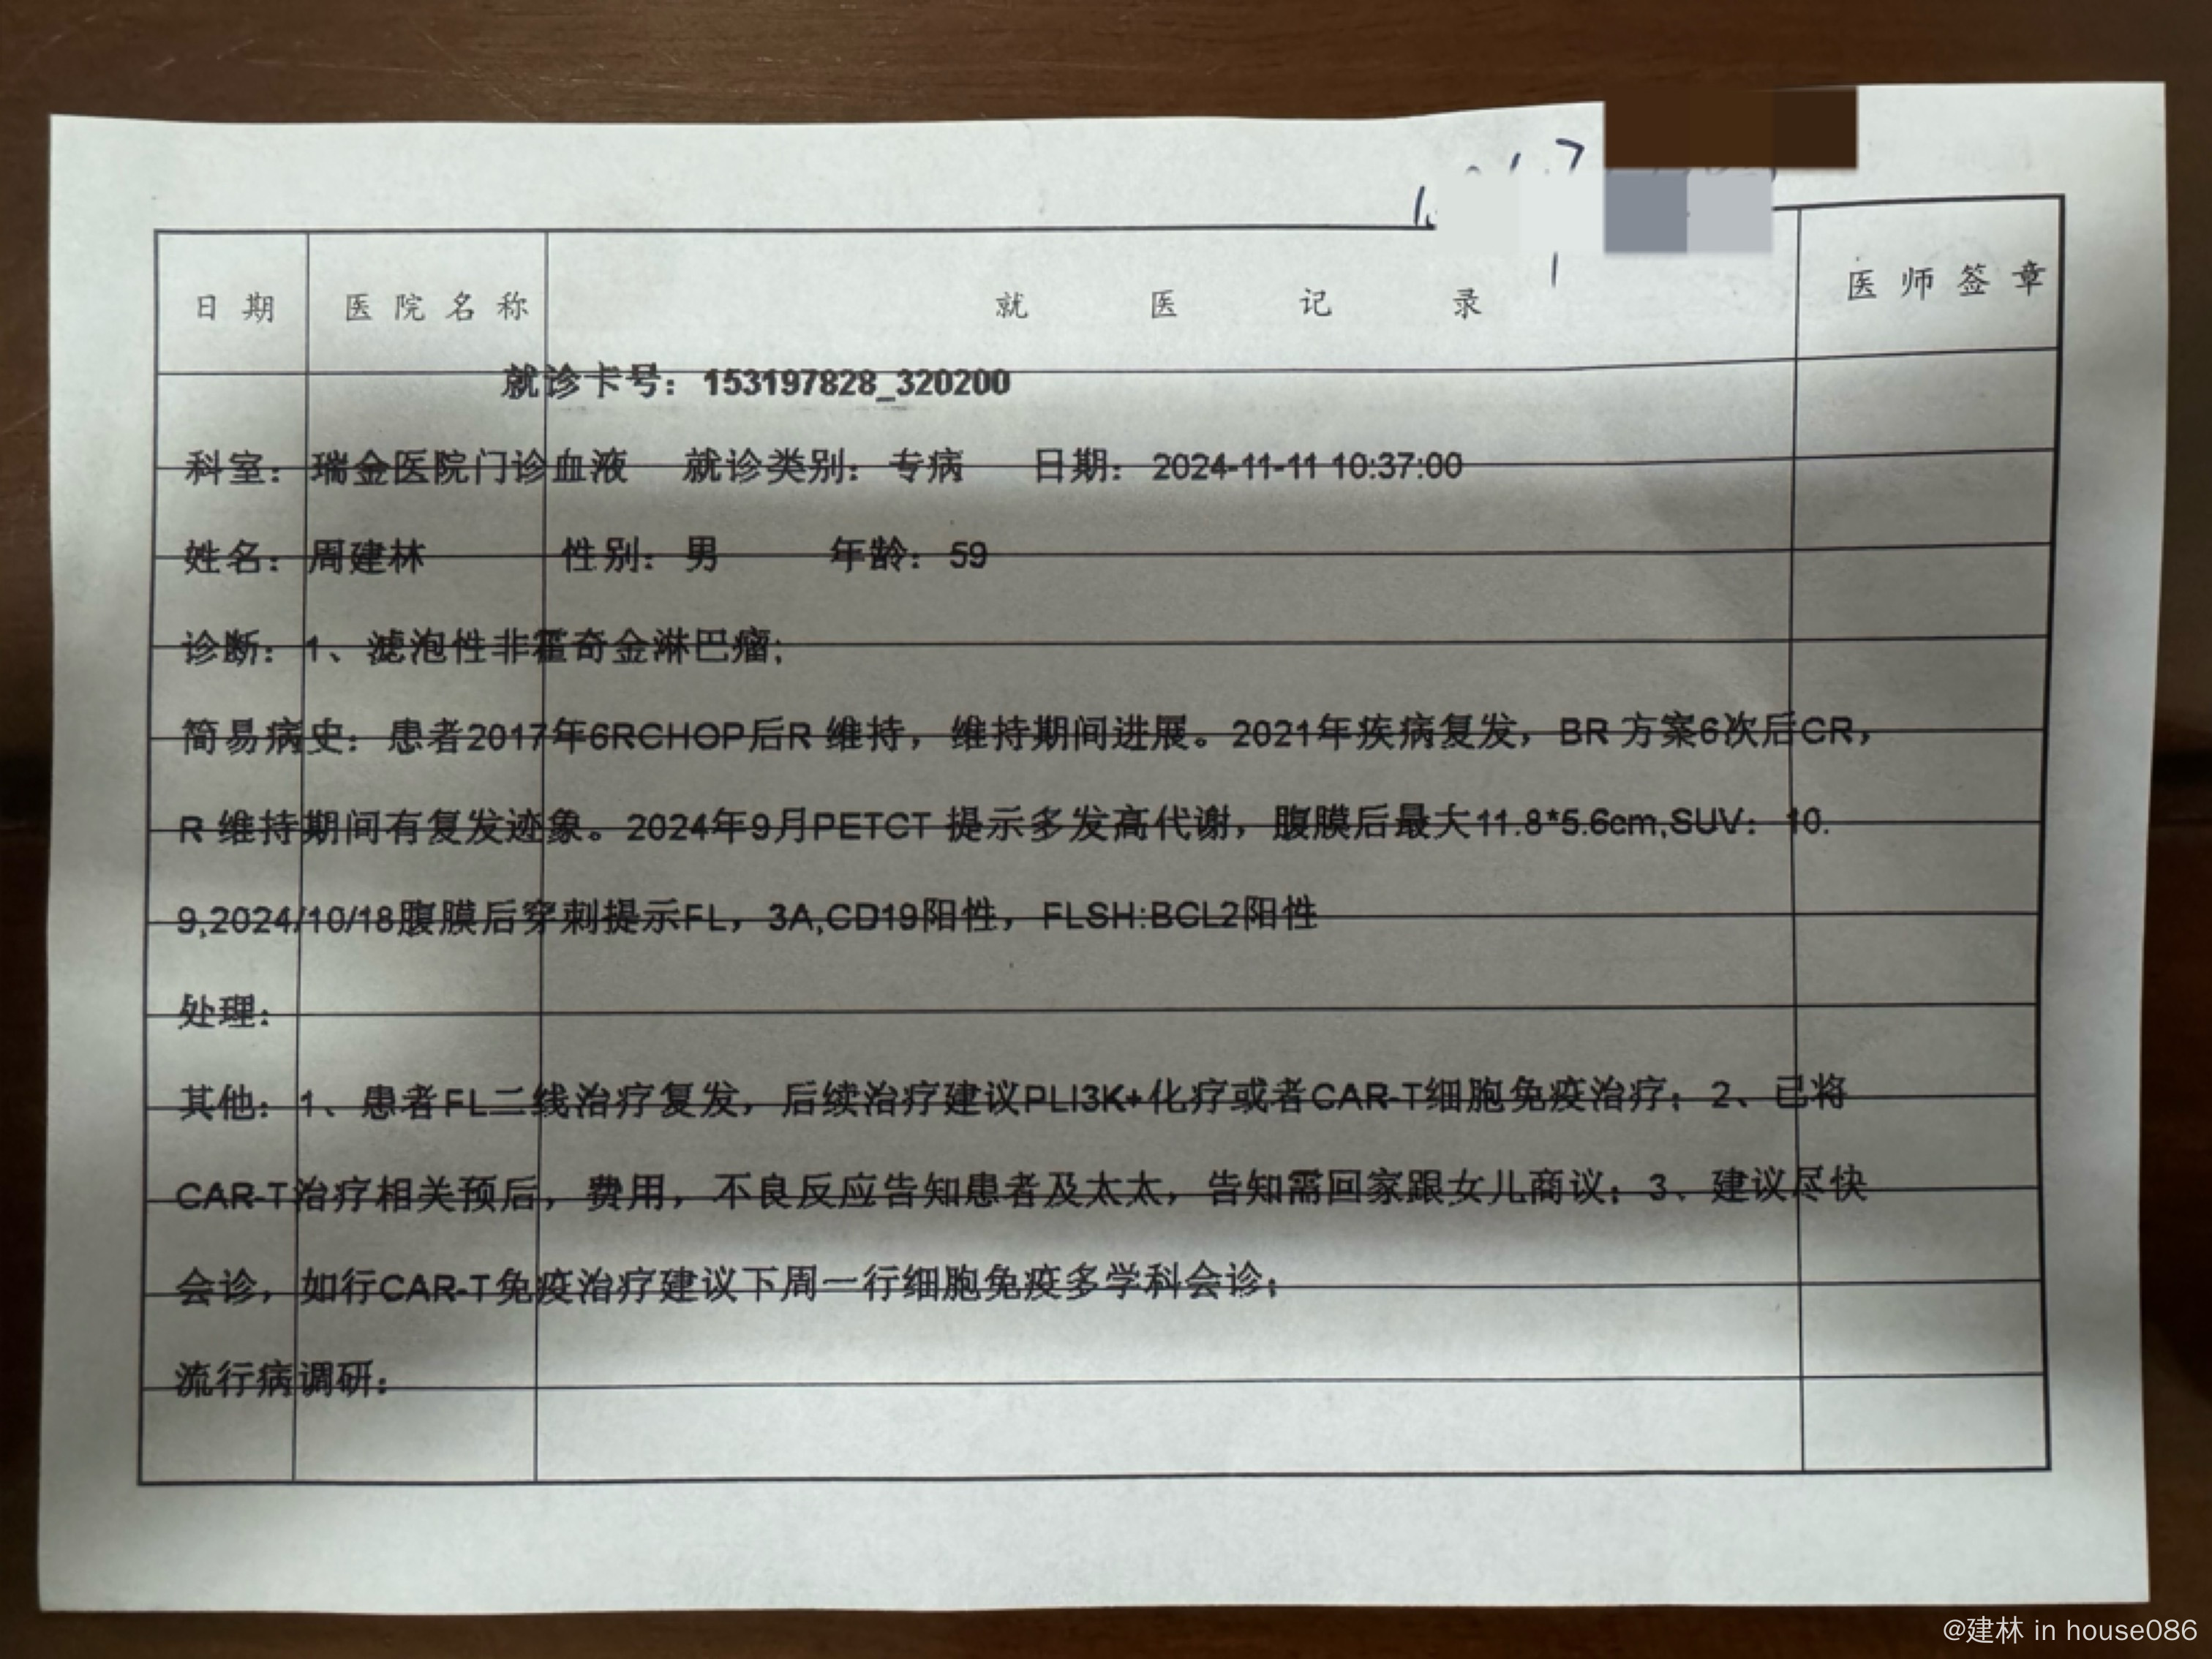 日期 医院名称 就医记录 医师签章
就诊卡号：153197828_320200
科室：瑞金医院门诊血液 就诊类别：专病 日期：2024-11-11 10:37:00
姓名：周建林 性别：男 年龄：59
诊断：1、滤泡性非霍奇金淋巴瘤;
简易病史：患者2017年6RCHOP后R 维持，维持期间进展。2021年疾病复发，BR 方案6次后CR，
R 维持期间有复发迹象。2024年9月PETCT 提示多发高代谢，腹膜后最大11.8*5.6cm,SUV：10.
9,2024/10/18腹膜后穿刺提示FL，3A,CD19阳性，FLSH:BCL2阳性
处理：
其他：1、患者FL二线治疗复发，后续治疗建议PLI3K+化疗或者CAR-T细胞免疫治疗；2、已将
CAR-T治疗相关预后，费用，不良反应告知患者及太太，告知需回家跟女儿商议；3、建议尽快
会诊，如行CAR-T免疫治疗建议下周一行细胞免疫多学科会诊；
流行病调研：
@建林 in house086